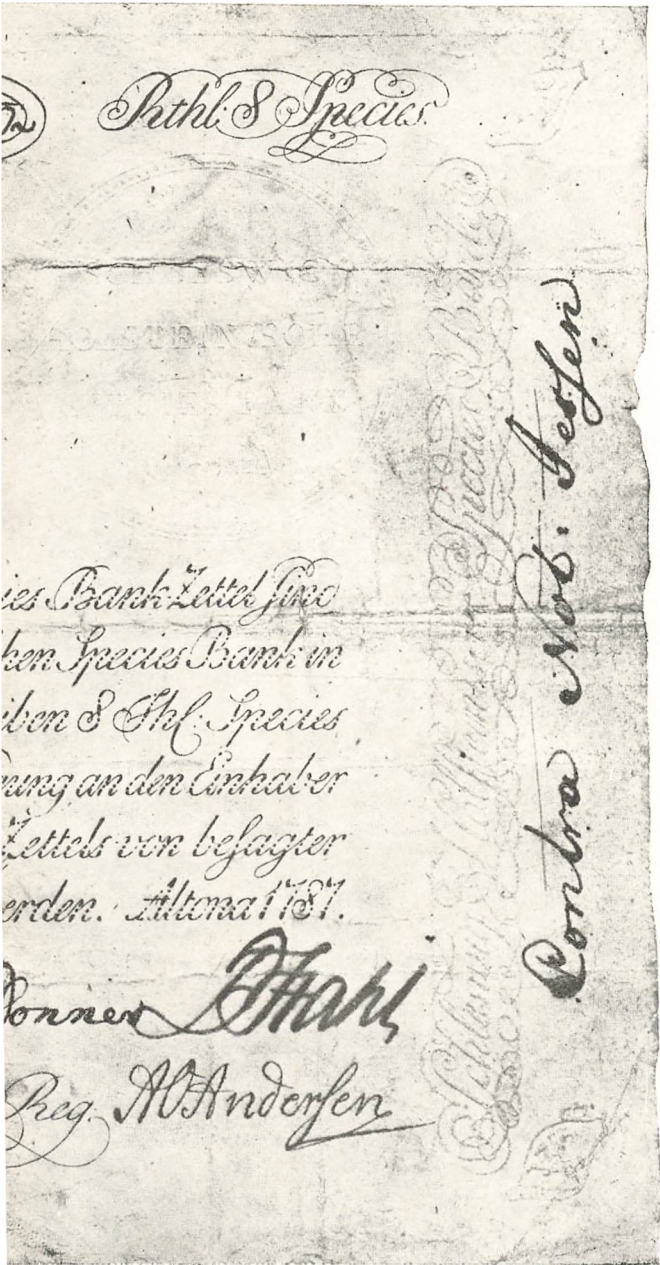 Rthl: 8 Species.
ies Bank Zettel sind
hen Species Bank in
iben 8 Thl: Species
nung an den Einhaber
Zettels von besagter
erden. Altona 1787.
Donner
Reg. AOAndersen
Contra Not: Jessen
Schleswig Holsteinische Species Bank